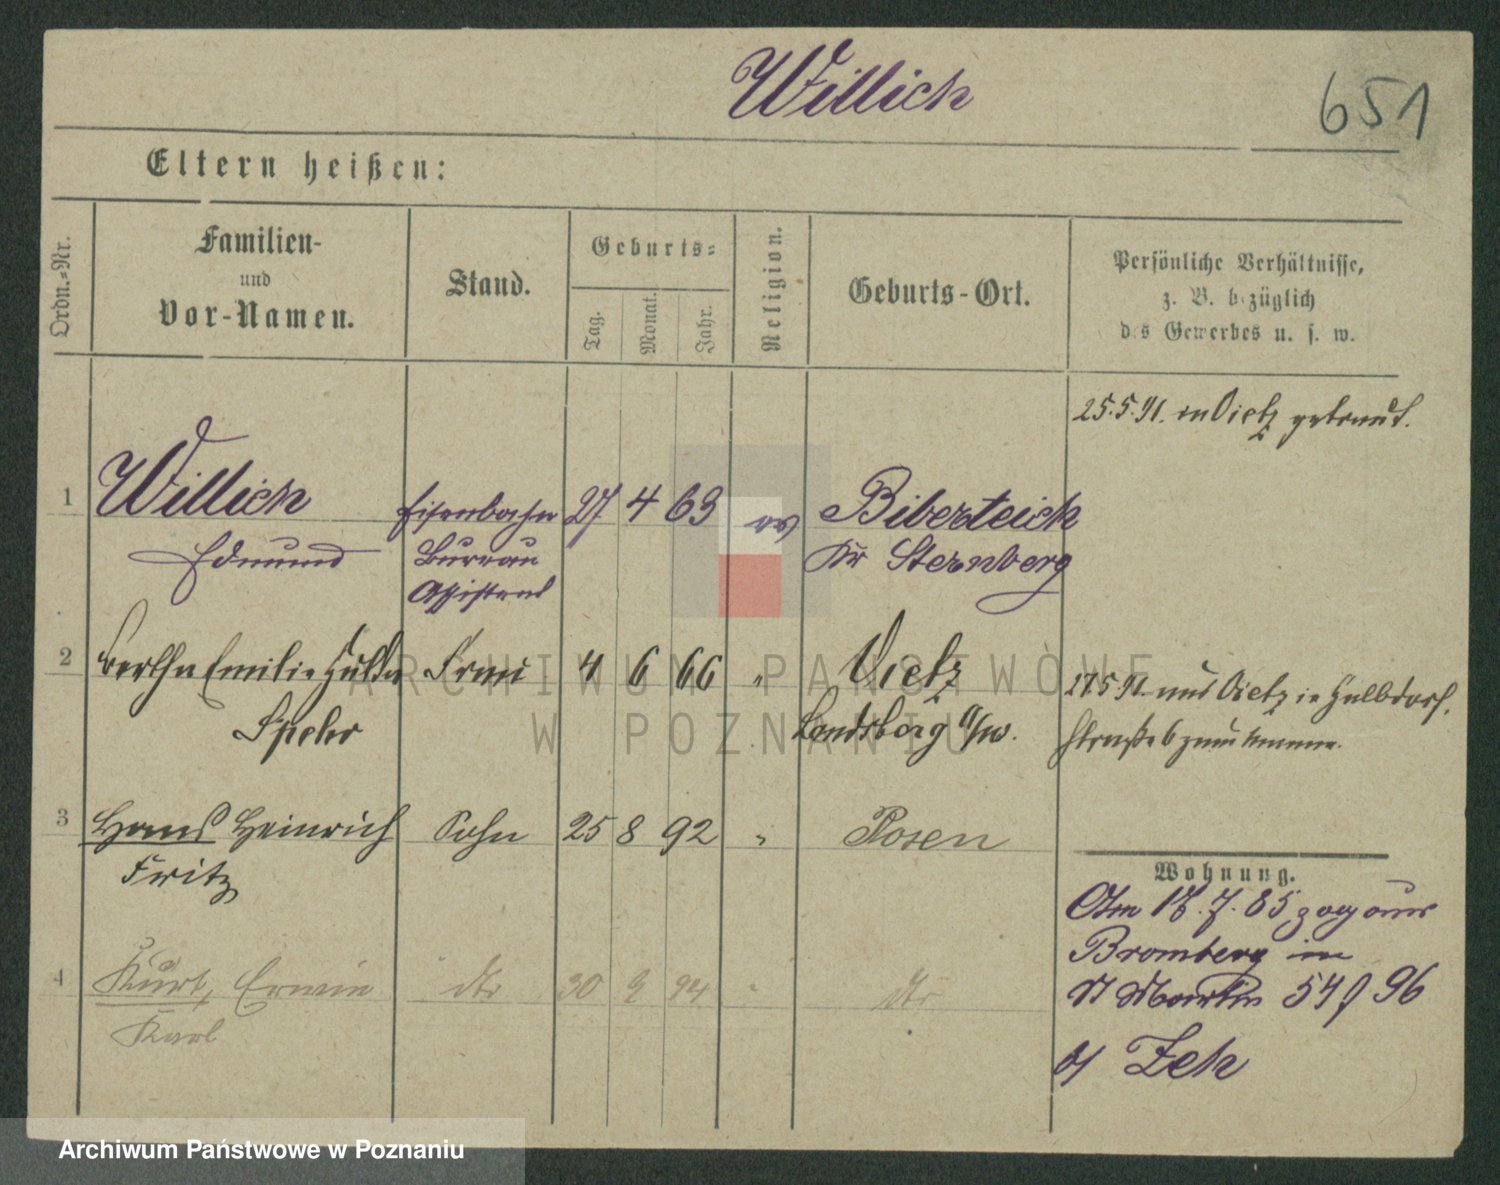 Willich
651
Eltern heißen:
Ordn.-Nr.
Familien-
und
Vor-Namen.
Stand.
Geburts-
Tag.
Monat.
Jahr.
Religion.
Geburts-Ort.
Persönliche Verhältnisse,
z. B. bezüglich
des Gewerbes u. s. w.
25.5.91. in Vietz getraut.
1 Willich Eisenbahn 27 4 63 ev Biberteich
Edmund Bureau Kr Sternberg
Assistent
2 Bertha Emilie Hulda Frau 4 6 66 " Vietz
Speer Landsberg a/w.
27.5.91. aus Vietz in Halbdorf,
straße 6 zum Manne.
3 Hans Heinrich Sohn 25 8 92 " Posen
Fritz
4 Kurt, Erwin dto 30 9 94 " dto
Karl
Wohnung.
Am 17.7.85 zog aus
Bromberg in
St Martin 54 f 96
b/ Zeh
ARCHIWUM PAŃSTWOWE
W POZNANIU
Archiwum Państwowe w Poznaniu